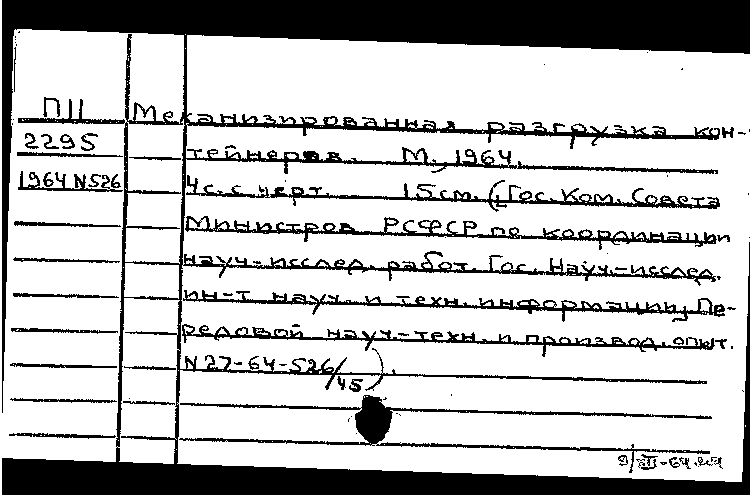 П11 Механизированная разгрузка кон-
2295 тейнеров. М., 1964.
1964 N526 4с. с черт. 15см. (Гос. Ком. Совета
Министров РСФСР по координации
науч.-исслед. работ. Гос. Науч.-исслед.
ин-т науч. и техн. информации, Пе-
редовой науч.-техн. и производ. опыт.
N 27-64-526/45).